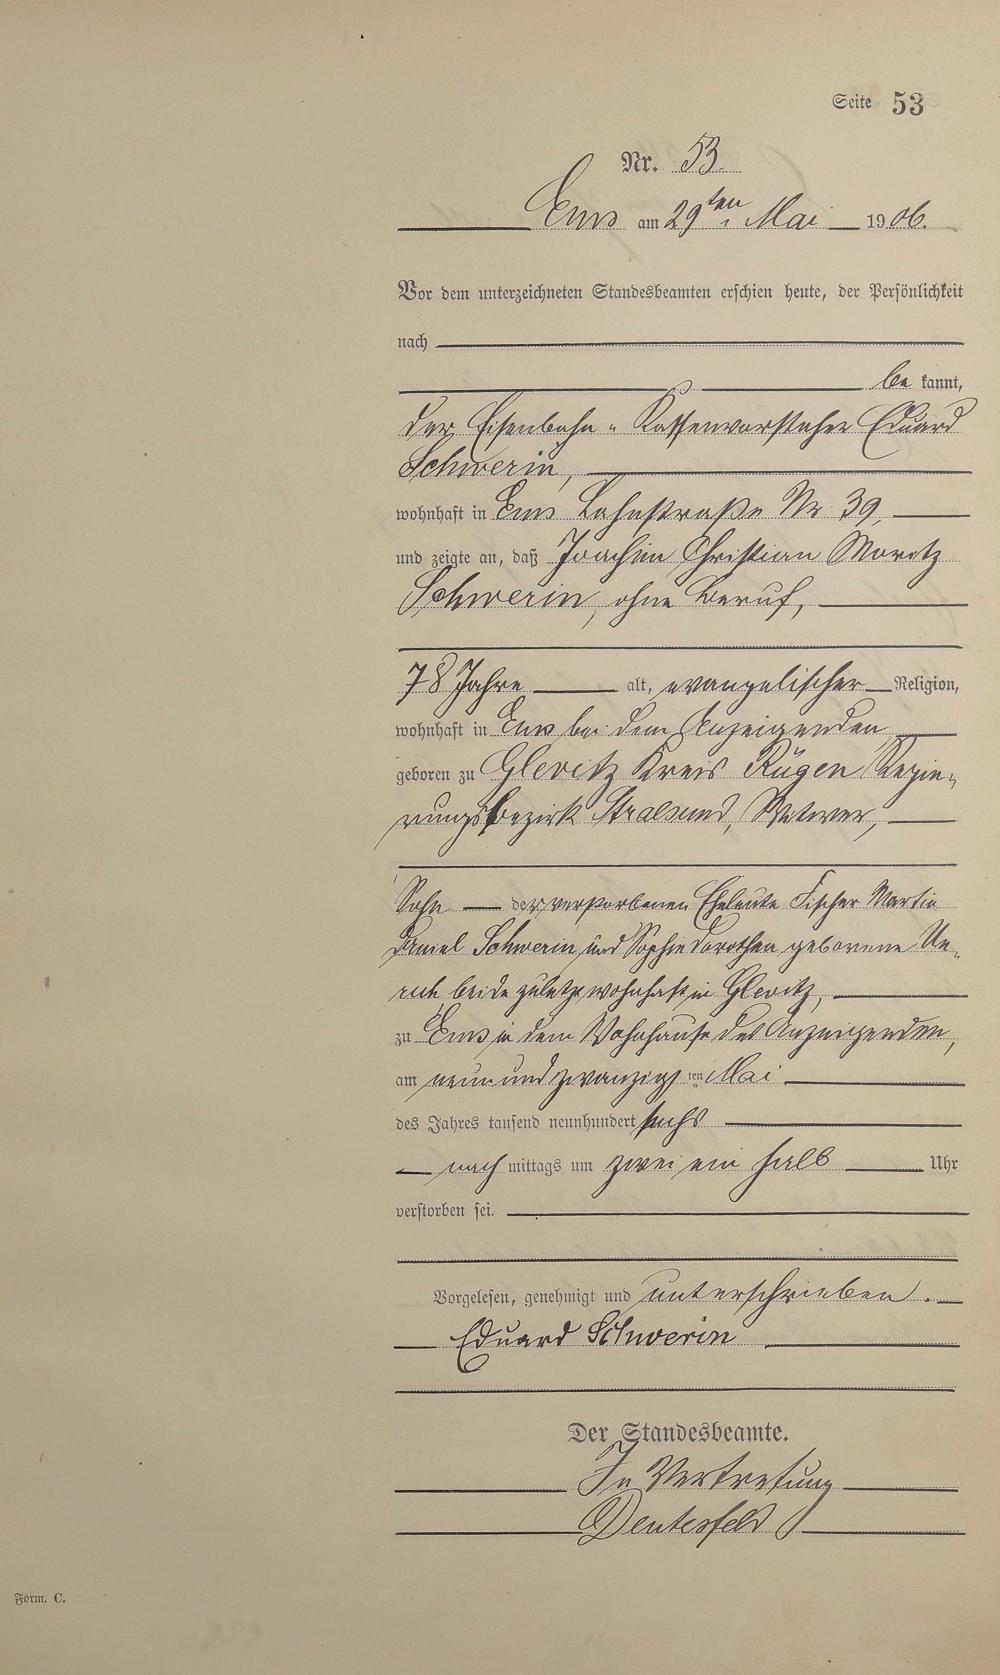 Seite 53
Nr. 53.
Ems am 29ten Mai 1906.
Vor dem unterzeichneten Standesbeamten erschien heute, der Persönlichkeit
nach
be kannt,
der Eisenbahn-Kassenvorsteher Eduard
Schwerin,
wohnhaft in Ems Lahnstraße Nr. 39,
und zeigte an, daß Joachim Christian Moritz
Schwerin, ohne Beruf,
78 Jahre alt, evangelischer Religion,
wohnhaft in Ems bei dem Anzeigenden
geboren zu Glevitz Kreis Rügen Regie-
rungsbezirk Stralsund, Witwer,
Sohn der verstorbenen Eheleute Fischer Martin
Daniel Schwerin und Sophie Dorothea geborene
beide zuletzt wohnhaft in Glevitz,
zu Ems in dem Wohnhause des Anzeigenden,
am neunundzwanzigsten Mai
des Jahres tausend neunhundert sechs
nach mittags um zwei ein halb Uhr
verstorben sei.
Vorgelesen, genehmigt und unterschrieben.
Eduard Schwerin
Der Standesbeamte.
In Vertretung
Form. C.